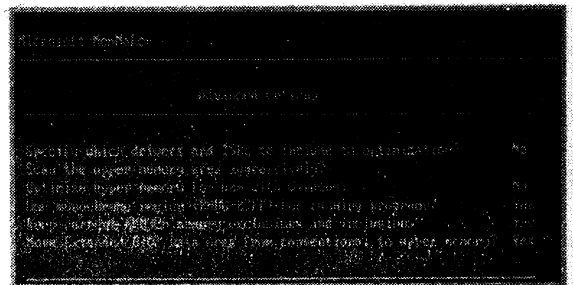 Microsoft MemMaker
Advanced Options
Specify which drivers and TSRs to include in optimization? No
Scan the upper memory area aggressively?
Optimize upper memory for use with Windows? No
Use monochrome region (B000-B7FF) for running programs? Yes
Keep current memory exclusions and inclusions? Yes
Move Extended BIOS Data Area from conventional to upper memory? Yes